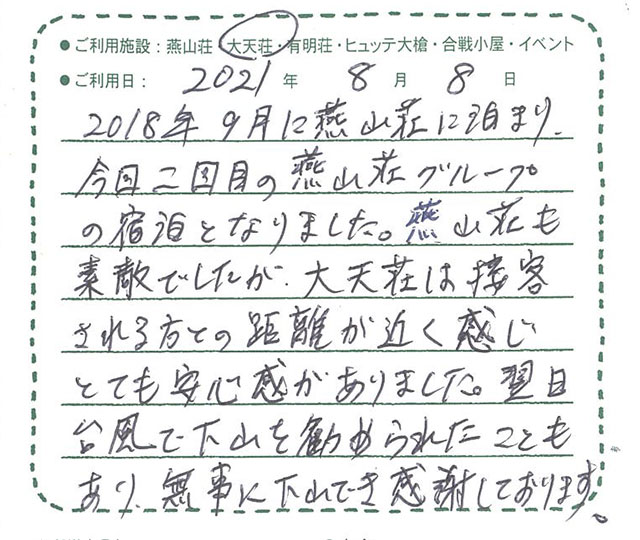 ●ご利用施設：燕山荘・大天荘・有明荘・ヒュッテ大槍・合戦小屋・イベント
●ご利用日：2021年 8月 8日
2018年9月に燕山荘に泊まり、
今回二回目の燕山荘グループ
の宿泊となりました。燕山荘も
素敵でしたが、大天荘は接客
される方との距離が近く感じ
とても安心感がありました。翌日
台風で下山を勧められたことも
あり、無事に下山でき感謝しております。